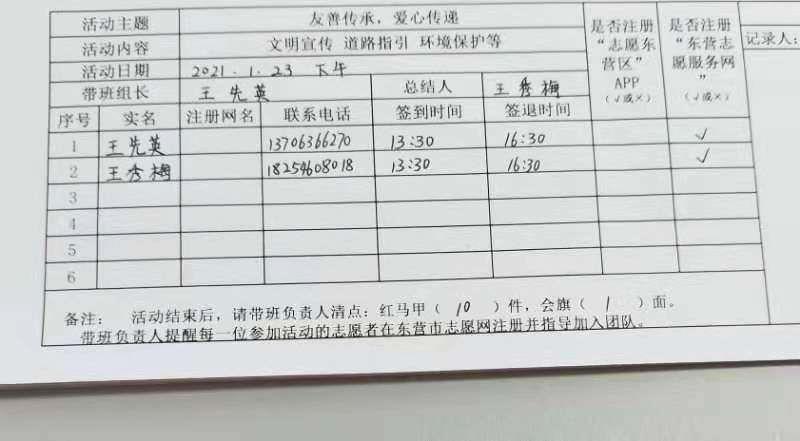 活动主题 友善传承，爱心传递 是否注册“志愿东营区”APP（√或×） 是否注册“东营志愿服务网”（√或×）
活动内容 文明宣传 道路指引 环境保护等 记录人：
活动日期 2021.1.23 下午
带班组长 王先英 总结人 王秀梅
序号 实名 注册网名 联系电话 签到时间 签退时间
1 王先英 13706366270 13:30 16:30 √
2 王秀梅 18254608018 13:30 16:30 √
3
4
5
6
备注： 活动结束后，请带班负责人清点：红马甲（ 10 ）件，会旗（ 1 ）面。
带班负责人提醒每一位参加活动的志愿者在东营市志愿网注册并指导加入团队。